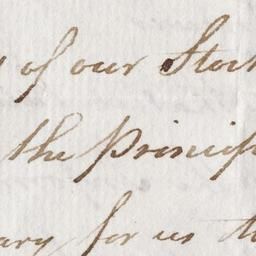 of our Stock
the Princip
ary for us to